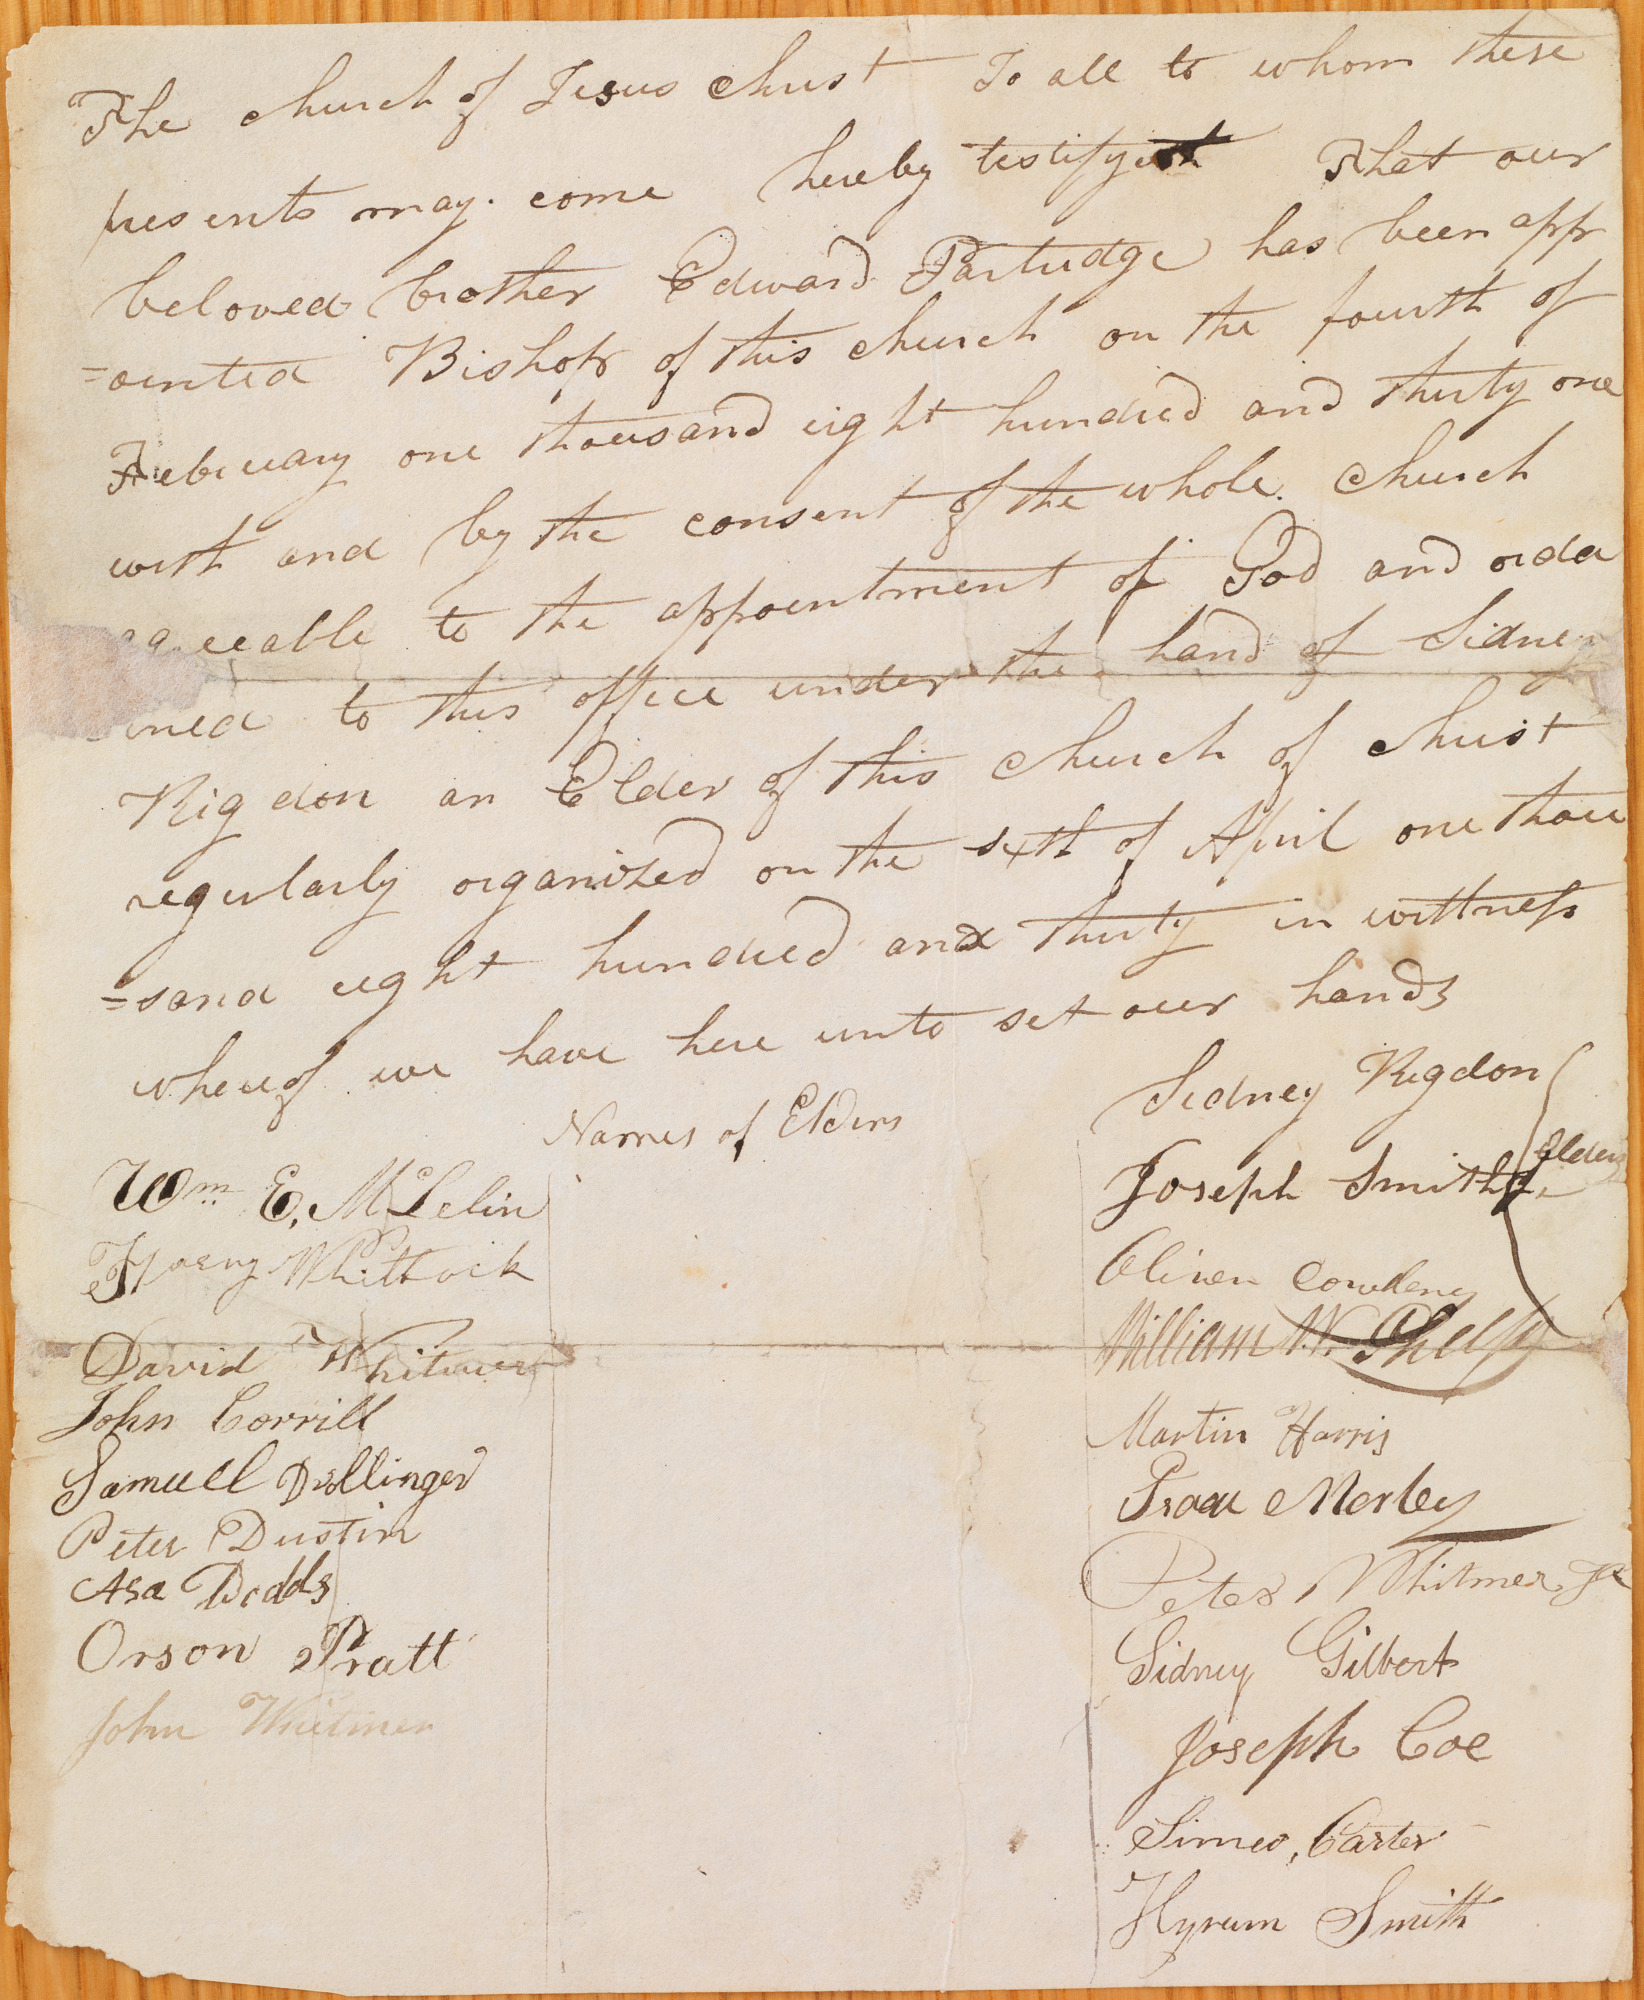 The church of Jesus Christ To all to whom these
presents may come hereby testifyeth That our
beloved brother Edward Partridge has been app
=ointed Bishop of this church on the fourth of
February one thousand eight hundred and thirty one
with and by the consent of the whole church
agreeable to the appointment of God and orda
-ined to this office under the hand of Sidney
Rigdon an Elder of this church of christ
regularly organized on the sixth of April one thou
=sand eight hundred and thirty in wittness
whereof we have here unto set our hands
Names of Elders
Wm E. McLelin
Harvy Whitlock
David Whitmer
John Corrill
Samuel Dellinger
Peter Dustin
Asa Dodds
Orson Pratt
John Whitmer
Sidney Rigdon
Joseph Smith Jr.
Elders
Oliver Cowdery
William W. Phelps
Martin Harris
Isaac Morley
Peter Whitmer Jr
Sidney Gilbert
Joseph Coe
Simeo, Carter
Hyrum Smith